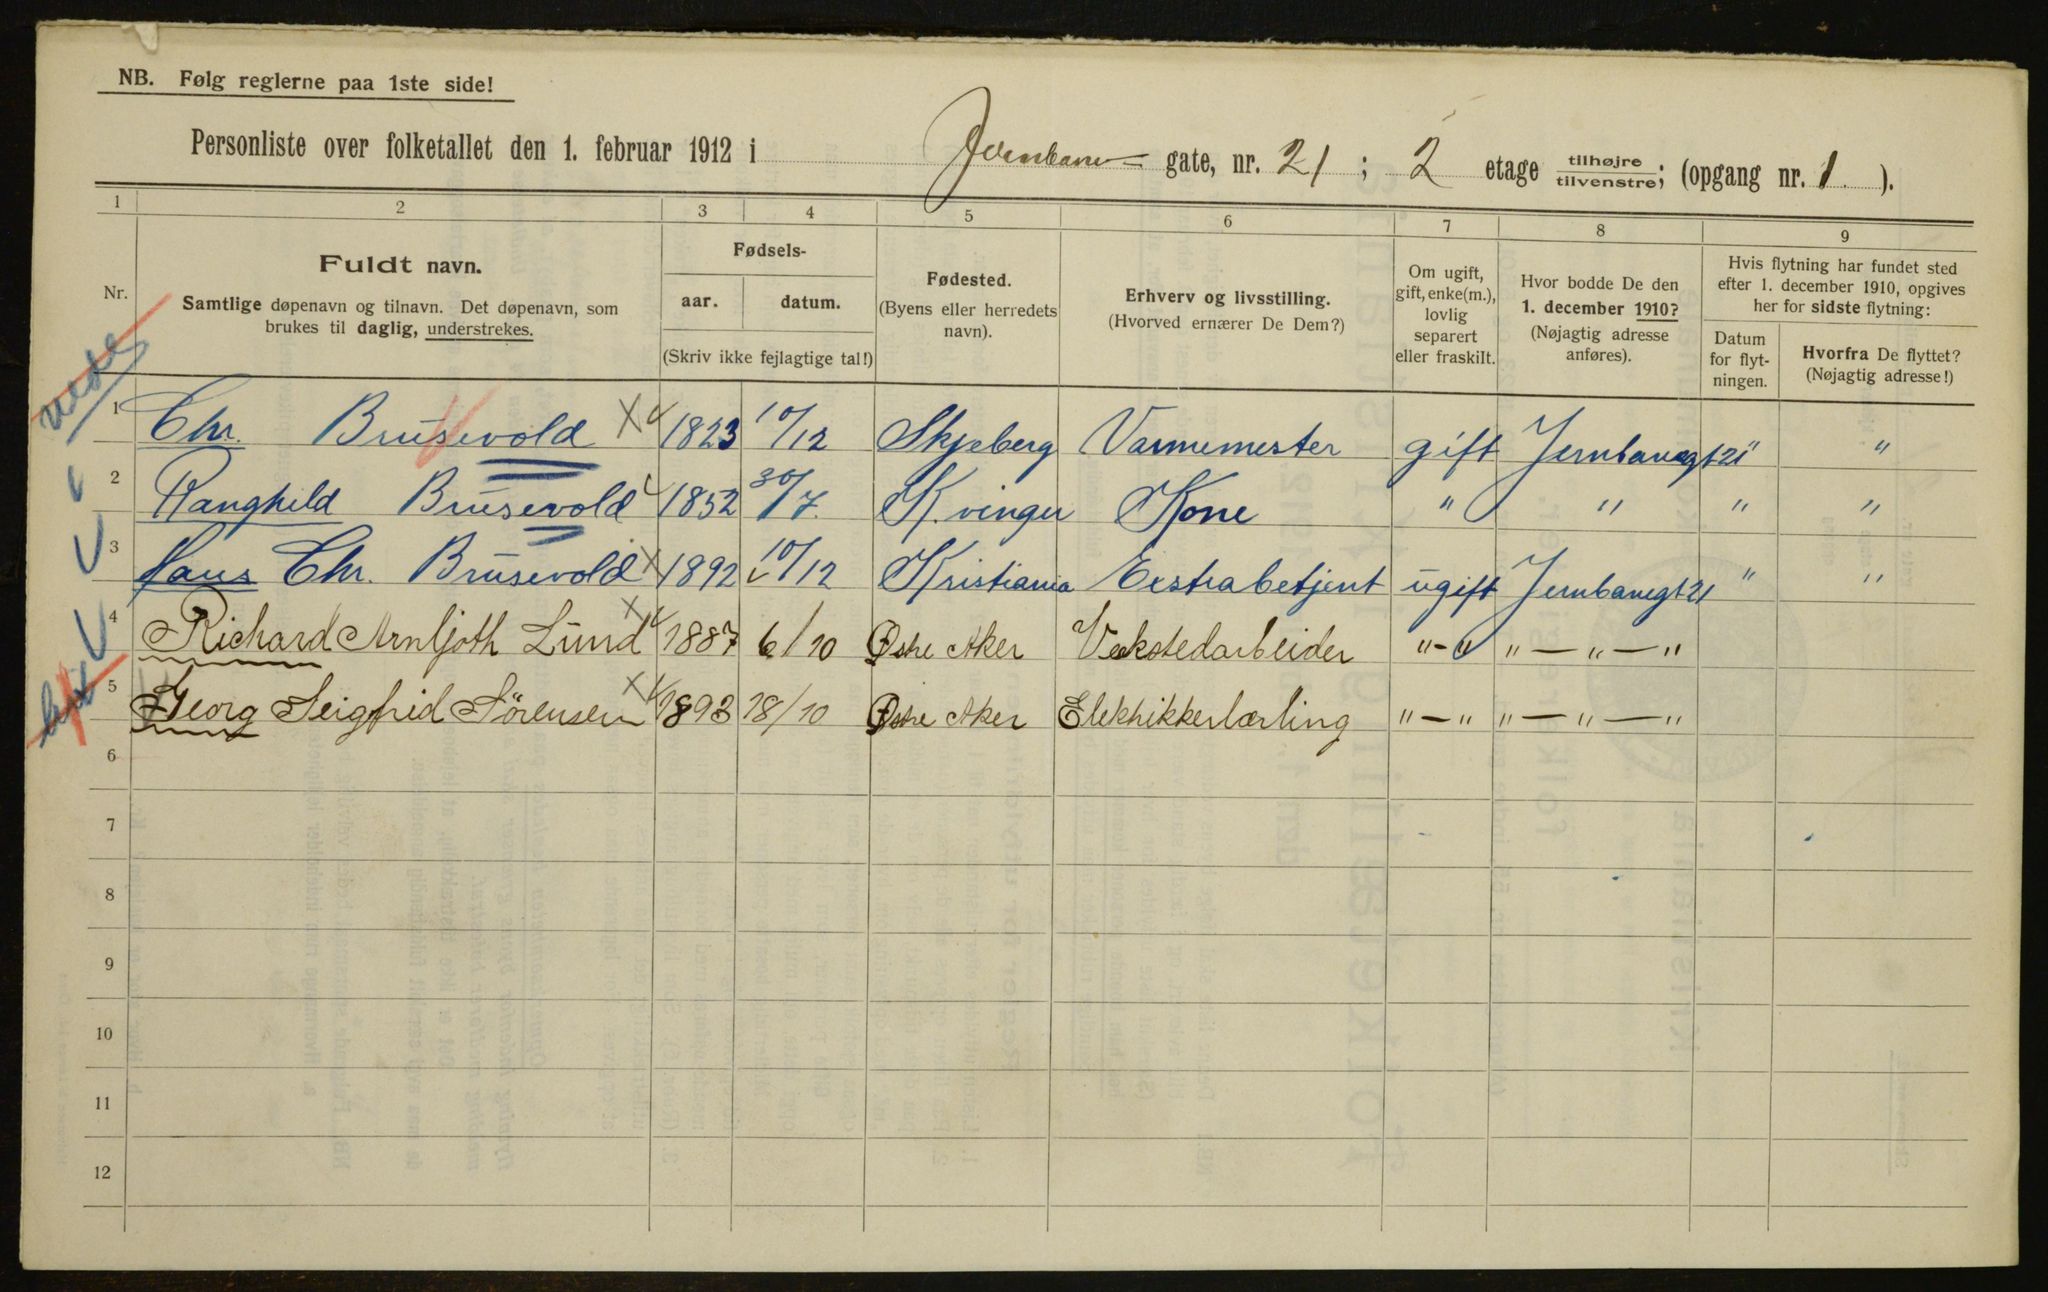 NB. Følg reglerne paa 1ste side!
Personliste over folketallet den 1. februar 1912 i Jernbane gate, nr. 21; 2 etage tilhøjre/tilvenstre; (opgang nr. 1 ).
1 2 3 4 5 6 7 8 9
Nr.
Fuldt navn.
Samtlige døpenavn og tilnavn. Det døpenavn, som
brukes til daglig, understrekes.
Fødsels-
aar. datum.
(Skriv ikke fejlagtige tal!)
Fødested.
(Byens eller herredets
navn).
Erhverv og livsstilling.
(Hvorved ernærer De Dem?)
Om ugift,
gift, enke(m.),
lovlig
separert
eller fraskilt.
Hvor bodde De den
1. december 1910?
(Nøjagtig adresse
anføres).
Hvis flytning har fundet sted
efter 1. december 1910, opgives
her for sidste flytning:
Datum
for flyt-
ningen.
Hvorfra De flyttet?
(Nøjagtig adresse!)
1 Chr. Brusevold 1823 10/12 Skjeberg Varmemester gift Jernbanegt 21 " "
2 Ranghild Brusevold 1852 30/7 K.vinger Kone " " " "
3 Hans Chr. Brusevold 1892 10/12 Kristiania Exstrabetjent ugift Jernbanegt 21 " "
4 Richard Arnljoth Lund 1887 6/10 Østre Aker Verkstedarbeider "-" "-"-"
5 Georg Seigfrid Sörensen 1893 18/10 Østre Aker Elektrikkerlærling "-" "-"-"
6
7
8
9
10
11
12